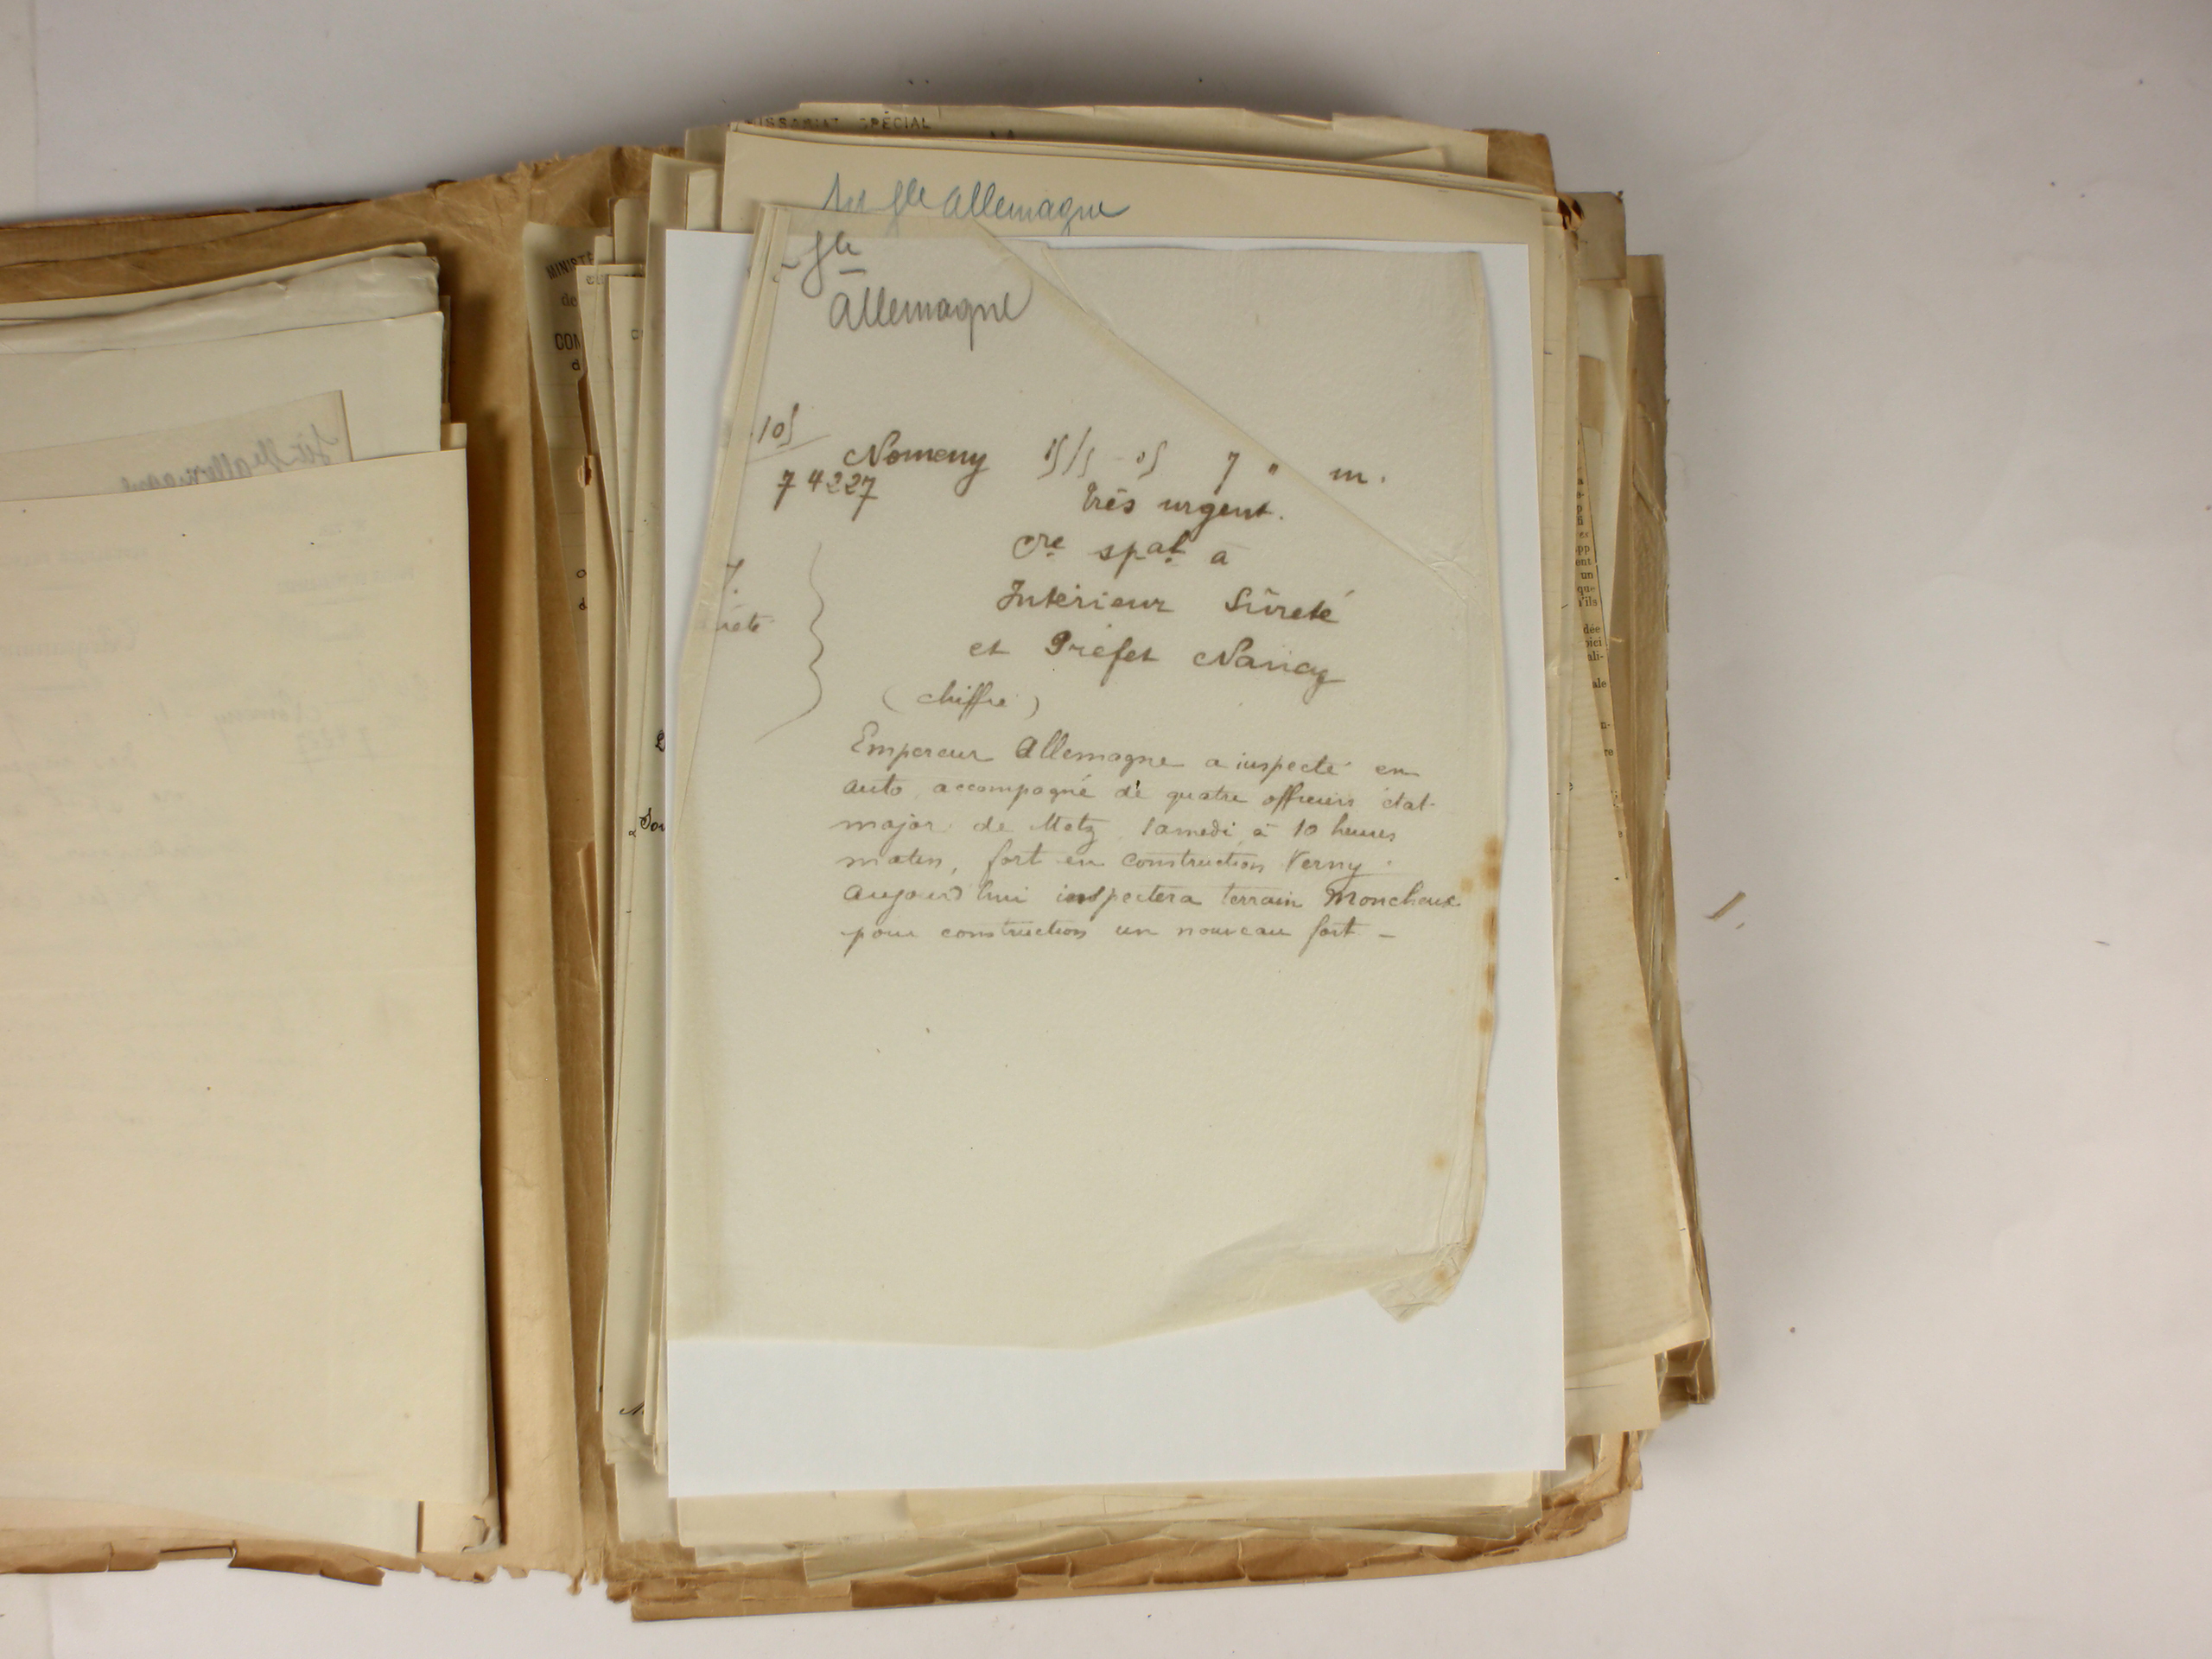 ISSARIAT SPÉCIAL
gle allemagne
gle
allemagne
105
Nomeny 15/5-05 7 " m.
74227
très urgent.
Cre spal à
Intérieur Sûreté
et Préfet Nancy
(chiffre)
Empereur Allemagne a inspecté en
auto, accompagné de quatre officiers état-
major de Metz, samedi à 10 heures
matin, fort en construction Verny.
aujourd'hui inspectera terrain Moncheux
pour construction un nouveau fort -
MINISTÈ
de
CON
d
pp
ent
un
que
s'ils
dée
ici
ali-
ale
re